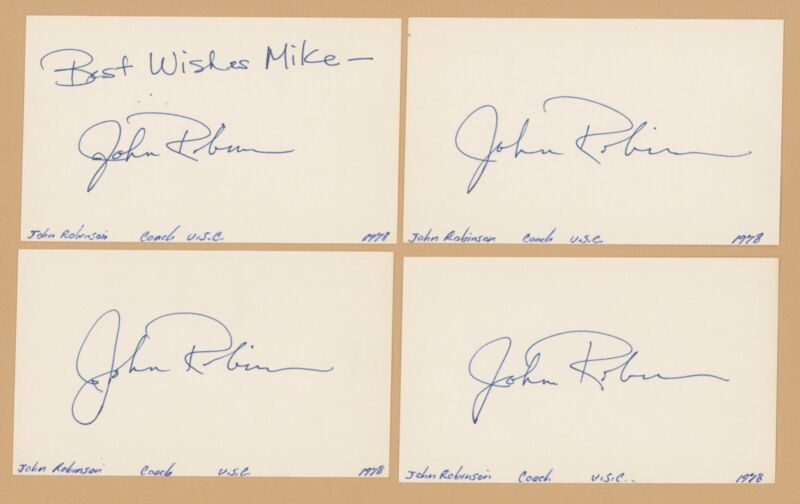 Best Wishes Mike –
John Robinson
John Robinson Coach U.S.C. 1978
John Robinson
John Robinson Coach U.S.C. 1978
John Robinson
John Robinson Coach U.S.C 1978
John Robinson
John Robinson Coach U.S.C. 1978